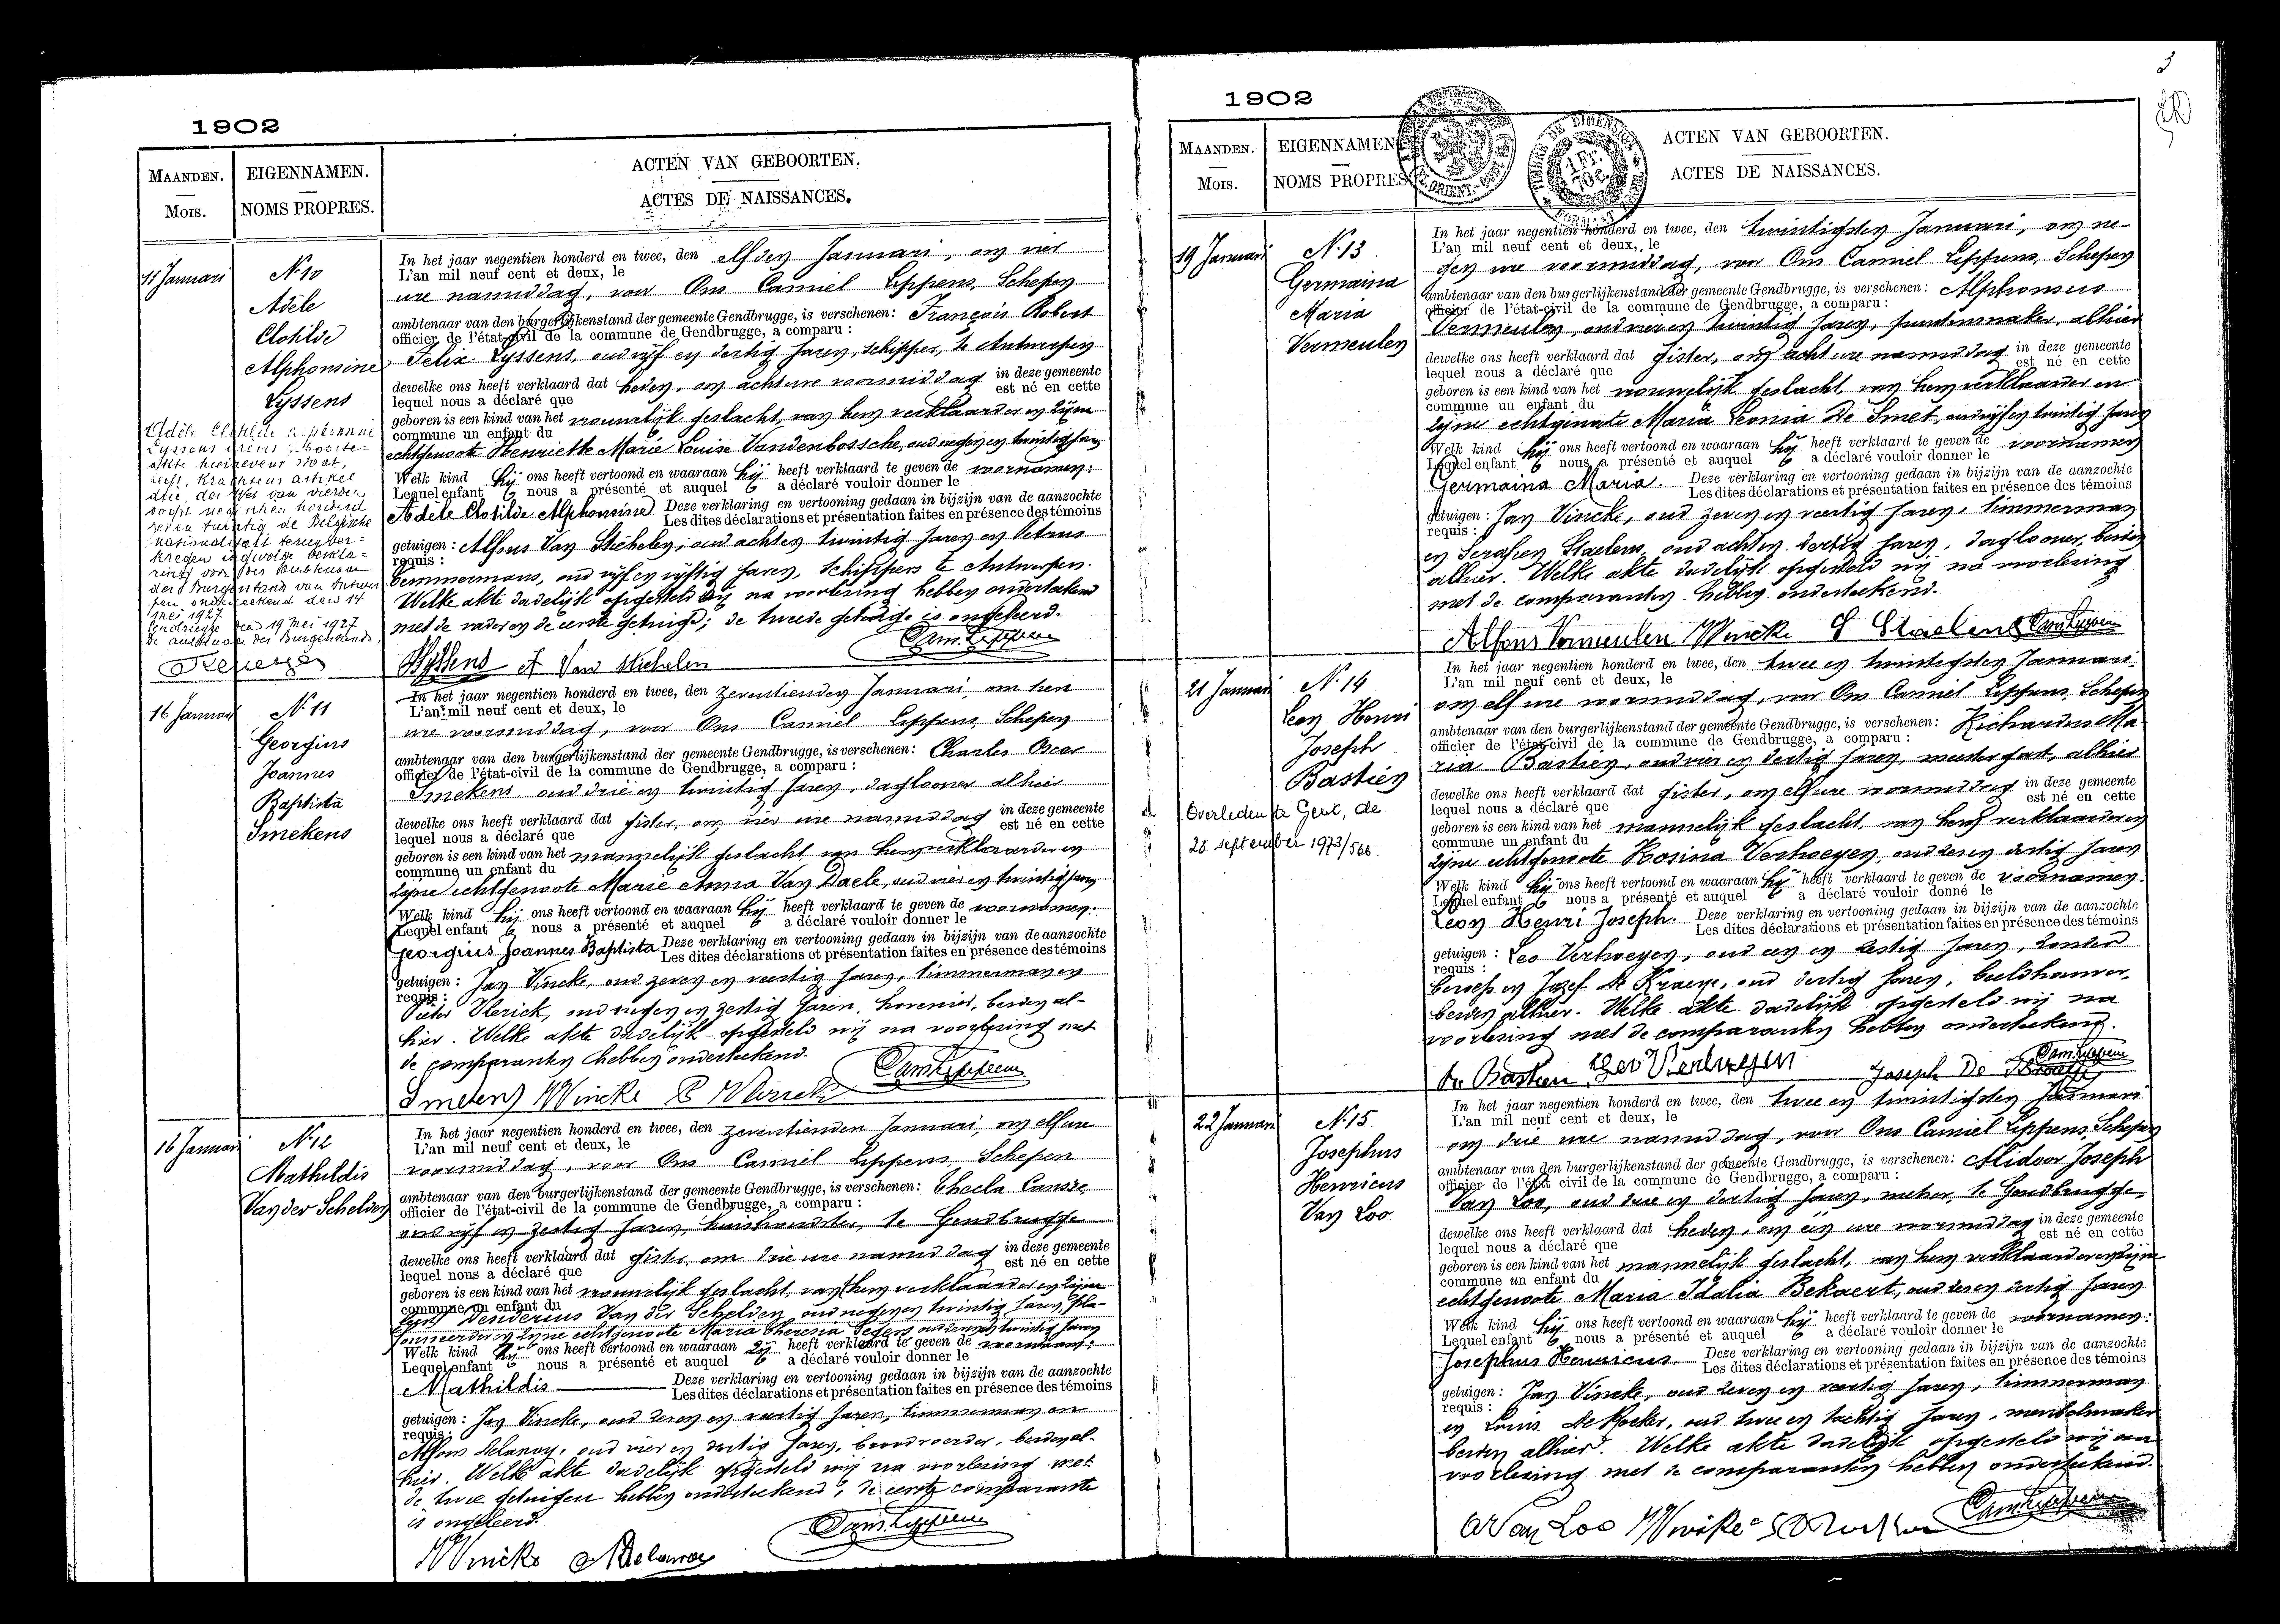 1902
MAANDEN.
MOIS.
EIGENNAMEN.
NOMS PROPRES.
ACTEN VAN GEBOORTEN.
ACTES DE NAISSANCES.
11 Januari
N. 10
Adèle
Clotilde
Alphonsine
Lyssens
In het jaar negentien honderd en twee, den elfden Januari, om vier
L'an mil neuf cent et deux, le
ure namiddag, voor Ons Camiel Lippens, Schepen
ambtenaar van den burgerlijkenstand der gemeente Gendbrugge, is verschenen: François Robert
officier de l'état-civil de la commune de Gendbrugge, a comparu :
Felix Lyssens, oud vijf en dertig jaren, schipper, te Antwerpen
dewelke ons heeft verklaard dat heden, om acht ure voormiddag in deze gemeente
lequel nous a déclaré que est né en cette
geboren is een kind van het vrouwelijk geslacht, van hem verklaarder en zijne
commune un enfant du
echtgenoote Henriette Marie Louise Vandenbossche, oud negen en twintig jaren
Welk kind hij ons heeft vertoond en waaraan hij heeft verklaard te geven de voornamen:
Lequel enfant nous a présenté et auquel a déclaré vouloir donner le
Adèle Clotilde Alphonsine Deze verklaring en vertooning gedaan in bijzijn van de aanzochte
Les dites déclarations et présentation faites en présence des témoins
getuigen : Alfons Van Stichelen, oud acht en twintig jaren en Petrus
requis :
oud vijf en vijftig jaren, schippers te Antwerpen.
Welke akte dadelijk opgesteld wij na voorlezing hebben onderteekend
met de vader en de eerste getuige; de tweede getuige is ongeleerd.
Lyssens A Van Stichelen Cam. Lippens
Adèle Clotilde Alphonsine
Lyssens wiens geboorte-
akte hierneven staat,
heeft, krachtens artikel
drie der Wet van vierden
oogst negentien honderd
zes en twintig de Belgische
nationaliteit terugver-
kregen ingevolge verkla-
ring voor den Ambtenaar
den Burgerstand van Antwer-
pen onderteekend den 14
Mei 1927
Gendbrugge den 19 Mei 1927
De ambtenaar des Burgerstands,
16 Januari
N. 11
Georgius
Joannes
Baptista
Smekens
In het jaar negentien honderd en twee, den zeventienden Januari om tien
L'an mil neuf cent et deux, le
ure voormiddag, voor Ons Camiel Lippens, Schepen
ambtenaar van den burgerlijkenstand der gemeente Gendbrugge, is verschenen: Charles Oscar
officier de l'état-civil de la commune de Gendbrugge, a comparu :
Smekens, oud drie en twintig jaren, daglooner alhier
dewelke ons heeft verklaard dat gister, om vier ure namiddag in deze gemeente
lequel nous a déclaré que est né en cette
geboren is een kind van het mannelijk geslacht, van hem verklaarder en
commune un enfant du
zijne echtgenoote Marie Anna Van Daele, oud vier en twintig jaren
Welk kind hij ons heeft vertoond en waaraan hij heeft verklaard te geven de voornamen:
Lequel enfant nous a présenté et auquel a déclaré vouloir donner le
Georgius Joannes Baptista Deze verklaring en vertooning gedaan in bijzijn van de aanzochte
Les dites déclarations et présentation faites en présence des témoins
getuigen : Jan Vincke, oud zeven en veertig jaren, timmerman en
requis :
Pieter Vlerick, oud negen en zestig jaren, hovenier, beiden al-
hier. Welke akte dadelijk opgesteld wij na voorlezing met
de comparanten hebben onderteekend.
Smekens J Vincke P Vlerick Cam. Lippens
16 Januari
N. 12
Mathildis
Van der Schelden
In het jaar negentien honderd en twee, den zeventienden Januari, om elf ure
L'an mil neuf cent et deux, le
voormiddag, voor Ons Camiel Lippens, Schepen
ambtenaar van den burgerlijkenstand der gemeente Gendbrugge, is verschenen: Thecla
officier de l'état-civil de la commune de Gendbrugge, a comparu :
oud vijf en zestig jaren, huishoudster, te Gendbrugge
dewelke ons heeft verklaard dat gister, om drie ure namiddag in deze gemeente
lequel nous a déclaré que est né en cette
geboren is een kind van het vrouwelijk geslacht, van hem verklaarder en zijne
commune un enfant du
Desiderius Van der Schelden, oud negen en twintig jaren, pla-
en zijne echtgenoote Maria Theresia oud zeven en twintig jaren
Welk kind zij ons heeft vertoond en waaraan zij heeft verklaard te geven de voornaam:
Lequel enfant nous a présenté et auquel a déclaré vouloir donner le
Mathildis Deze verklaring en vertooning gedaan in bijzijn van de aanzochte
Les dites déclarations et présentation faites en présence des témoins
getuigen : Jan Vincke, oud zeven en veertig jaren, timmerman en
requis :
Alfons Delanoy, oud vier en dertig jaren, beiden al-
hier. Welke akte dadelijk opgesteld wij na voorlezing met
de twee getuigen hebben onderteekend; de eerste comparante
is ongeleerd.
J Vincke A Delanoy Cam. Lippens
3
1902
MAANDEN.
MOIS.
EIGENNAMEN
NOMS PROPRES
ACTEN VAN GEBOORTEN.
ACTES DE NAISSANCES.
19 Januari
N. 13
Germaina
Maria
Vermeulen
In het jaar negentien honderd en twee, den twintigsten Januari, om ne-
L'an mil neuf cent et deux, le
gen ure voormiddag, voor Ons Camiel Lippens, Schepen
ambtenaar van den burgerlijkenstand der gemeente Gendbrugge, is verschenen: Alphonsus
officier de l'état-civil de la commune de Gendbrugge, a comparu :
Vermeulen, oud vier en twintig jaren, alhier
dewelke ons heeft verklaard dat gister, om acht ure namiddag in deze gemeente
lequel nous a déclaré que est né en cette
geboren is een kind van het vrouwelijk geslacht, van hem verklaarder en
commune un enfant du
zijne echtgenote Maria Leonia De Smet, oud vijf en twintig jaren
Welk kind hij ons heeft vertoond en waaraan hij heeft verklaard te geven de voornamen
Lequel enfant nous a présenté et auquel a déclaré vouloir donner le
Germaina Maria. Deze verklaring en vertooning gedaan in bijzijn van de aanzochte
Les dites déclarations et présentation faites en présence des témoins
getuigen : Jan Vincke, oud zeven en veertig jaren, timmerman
requis :
en Serafien Staelens, oud acht en dertig jaren, daglooner, beiden
alhier. Welke akte dadelijk opgesteld wij na voorlezing
met de comparanten hebben onderteekend.
Alfons Vermeulen J Vincke S Staelens Cam. Lippens
21 Januari
N. 14
Leon Henri
Joseph
Bastien
Overleden te Gent, de
28 september 1973/566.
In het jaar negentien honderd en twee, den twee en twintigsten Januari
L'an mil neuf cent et deux, le
om elf ure voormiddag, voor Ons Camiel Lippens, Schepen
ambtenaar van den burgerlijkenstand der gemeente Gendbrugge, is verschenen: Richardus Ma-
officier de l'état-civil de la commune de Gendbrugge, a comparu :
ria Bastien, oud vier en dertig jaren, meestergast, alhier
dewelke ons heeft verklaard dat gister, om elf ure voormiddag in deze gemeente
lequel nous a déclaré que est né en cette
geboren is een kind van het mannelijk geslacht, van hem verklaarder en
commune un enfant du
zijne echtgenoote Rosina Verhoeyen, oud zes en dertig jaren
Welk kind hij ons heeft vertoond en waaraan hij heeft verklaard te geven de voornamen.
Lequel enfant nous a présenté et auquel a déclaré vouloir donné le
Leon Henri Joseph. Deze verklaring en vertooning gedaan in bijzijn van de aanzochte
Les dites déclarations et présentation faites en présence des témoins
getuigen : Leo Verhoeyen, oud een en zestig jaren, zonder
requis :
beroep en Jozef De Kraeye, oud dertig jaren, beeldhouwer,
beiden alhier. Welke akte dadelijk opgesteld wij na
voorlezing met de comparanten hebben onderteekend.
R. Bastien Leo Verhoeyen Joseph De Cam. Lippens
22 Januari
N. 15
Josephus
Henricus
Van Loo
In het jaar negentien honderd en twee, den twee en twintigsten Januari
L'an mil neuf cent et deux, le
om drie ure namiddag, voor Ons Camiel Lippens, Schepen
ambtenaar van den burgerlijkenstand der gemeente Gendbrugge, is verschenen: Alidoor Joseph
officier de l'état civil de la commune de Gendbrugge, a comparu :
Van Loo, oud drie en dertig jaren, te Gendbrugge
dewelke ons heeft verklaard dat heden, om één ure voormiddag in deze gemeente
lequel nous a déclaré que est né en cette
geboren is een kind van het mannelijk geslacht, van hem verklaarder en zijne
commune un enfant du
echtgenoote Maria Idalia Bekaert, oud zes en dertig jaren
Welk kind hij ons heeft vertoond en waaraan hij heeft verklaard te geven de voornamen:
Lequel enfant nous a présenté et auquel a déclaré vouloir donner le
Josephus Henricus. Deze verklaring en vertooning gedaan in bijzijn van de aanzochte
Les dites déclarations et présentation faites en présence des témoins
getuigen : Jan Vincke, oud zeven en veertig jaren, timmerman
requis :
en Louis De oud twee en tachtig jaren, meubelmaker
beiden alhier. Welke akte dadelijk opgesteld wij na
voorlezing met de comparanten hebben onderteekend.
A Van Loo J Vincke Cam. Lippens